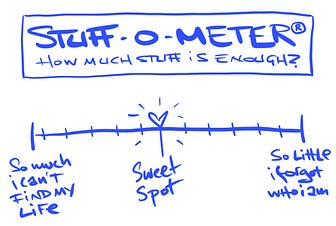 STUFF-O-METER®
HOW MUCH STUFF iS ENOUGH?
So much
i can't
FiND MY
LiFE
Sweet
Spot
So LiTTLE
i forgot
who i am